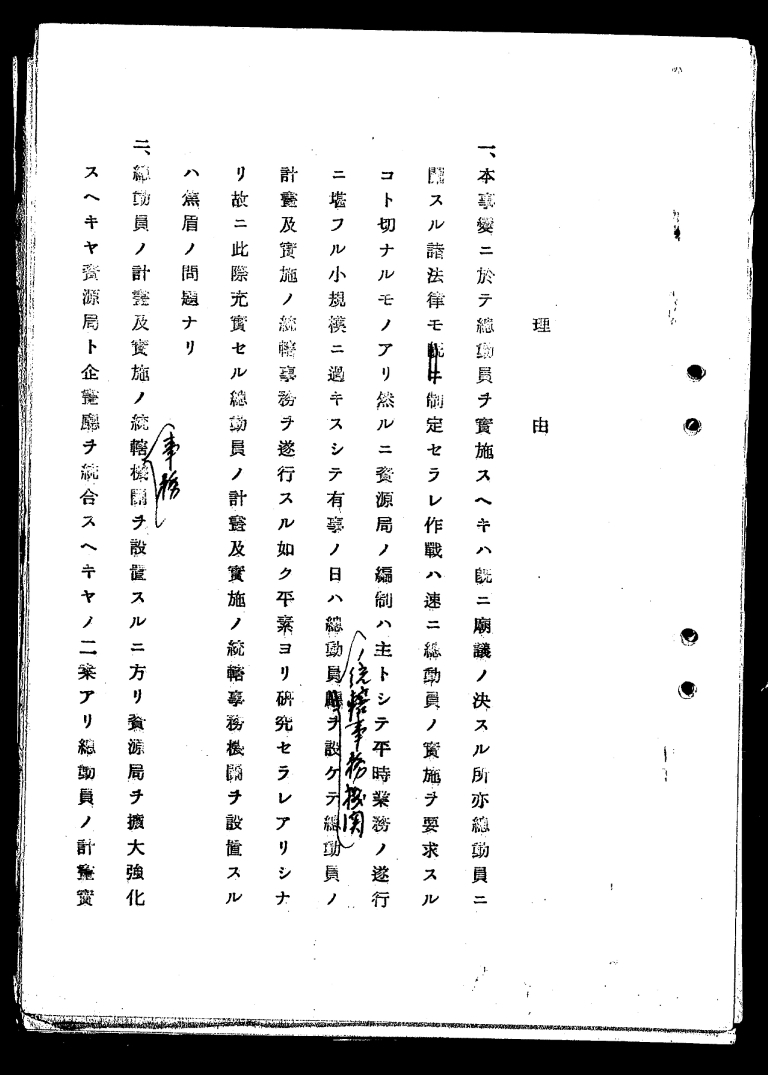 理由
一、本事變ニ於テ總動員ヲ實施スヘキハ既ニ廟議ノ決スル所亦總動員ニ
關スル諸法律モ既ニ制定セラレ作戰ハ速ニ總動員ノ實施ヲ要求スル
コト切ナルモノアリ然ルニ資源局ノ編制ハ主トシテ平時業務ノ遂行
ニ堪フル小規模ニ過キスシテ有事ノ日ハ總動員廳ヲ設ケテ總動員ノ
ノ統轄事務機関
計畫及實施ノ統轄事務ヲ遂行スル如ク平素ヨリ硏究セラレアリシナ
リ故ニ此際充實セル總動員ノ計畫及實施ノ統轄事務機關ヲ設置スル
ハ焦眉ノ問題ナリ
二、總動員ノ計畫及實施ノ統轄機關ヲ設置スルニ方リ資源局ヲ擴大強化
事務
スヘキヤ資源局ト企畫廳ヲ統合スヘキヤノ二案アリ總動員ノ計畫實